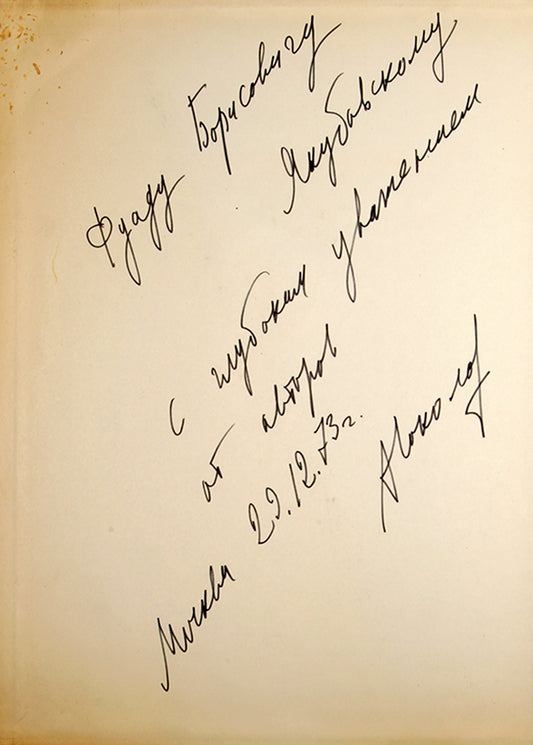 Фуаду Борисовичу
Якубовскому
с глубоким уважением
от авторов
Москва 29.12.73г.